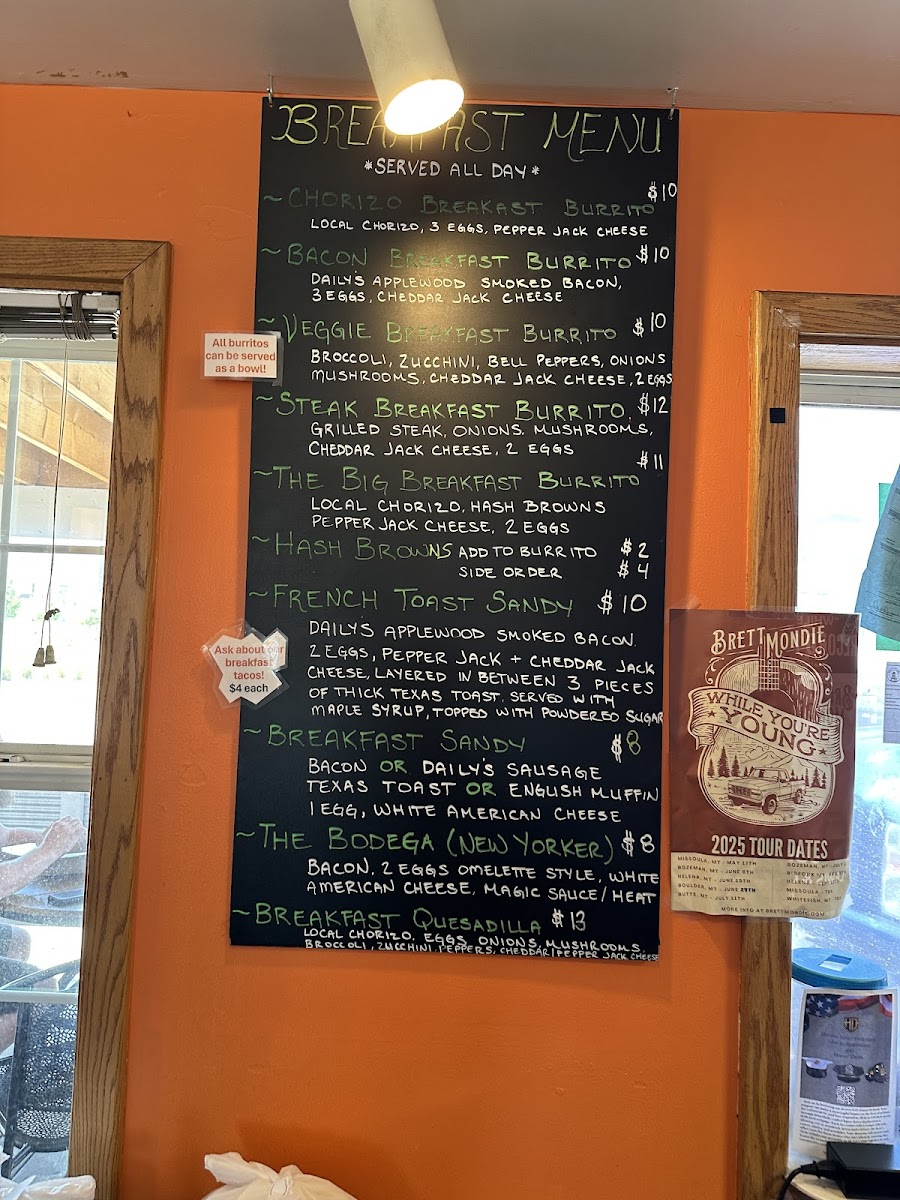 BREAKFAST MENU
*SERVED ALL DAY*
~CHORIZO BREAKAST BURRITO $10
LOCAL CHORIZO, 3 EGGS, PEPPER JACK CHEESE
~BACON BREAKFAST BURRITO $10
DAILY'S APPLEWOOD SMOKED BACON,
3 EGGS, CHEDDAR JACK CHEESE
~VEGGIE BREAKFAST BURRITO $10
BROCCOLI, ZUCCHINI, BELL PEPPERS, ONIONS
MUSHROOMS, CHEDDAR JACK CHEESE, 2 EGGS
~STEAK BREAKFAST BURRITO. $12
GRILLED STEAK, ONIONS. MUSHROOMS,
CHEDDAR JACK CHEESE, 2 EGGS
~THE BIG BREAKFAST BURRITO $11
LOCAL CHORIZO, HASH BROWNS
PEPPER JACK CHEESE, 2 EGGS
~HASH BROWNS ADD TO BURRITO $2
SIDE ORDER $4
~FRENCH TOAST SANDY $10
DAILY'S APPLEWOOD SMOKED BACON.
2 EGGS, PEPPER JACK + CHEDDAR JACK
CHEESE, LAYERED IN BETWEEN 3 PIECES
OF THICK TEXAS TOAST. SERVED WITH
MAPLE SYRUP, TOPPED WITH POWDERED SUGAR
~BREAKFAST SANDY $8
BACON OR DAILY'S SAUSAGE
TEXAS TOAST OR ENGLISH MUFFIN
1 EGG, WHITE AMERICAN CHEESE
~THE BODEGA (NEW YORKER) $8
BACON, 2 EGGS OMELETTE STYLE, WHITE
AMERICAN CHEESE, MAGIC SAUCE/HEAT
~BREAKFAST QUESADILLA $13
LOCAL CHORIZO, EGGS, ONIONS, MUSHROOMS,
BROCCOLI, ZUCCHINI, PEPPERS, CHEDDAR/PEPPER JACK CHEESE
All burritos
can be served
as a bowl!
Ask about our
breakfast
tacos!
$4 each
BRETT MONDIE
WHILE YOU'RE
YOUNG
2025 TOUR DATES
MISSOULA, MT - MAY 17TH
BOZEMAN, MT - JUNE 6TH
HELENA, MT - JUNE
BOULDER, MT - JUNE 27TH
BUTTE, MT - JULY 11TH
BOZEMAN, MT - JULY
HELENA
MISSOULA - TBA
WHITEFISH, MT - TBA
MORE INFO AT BRETTMONDIE.COM